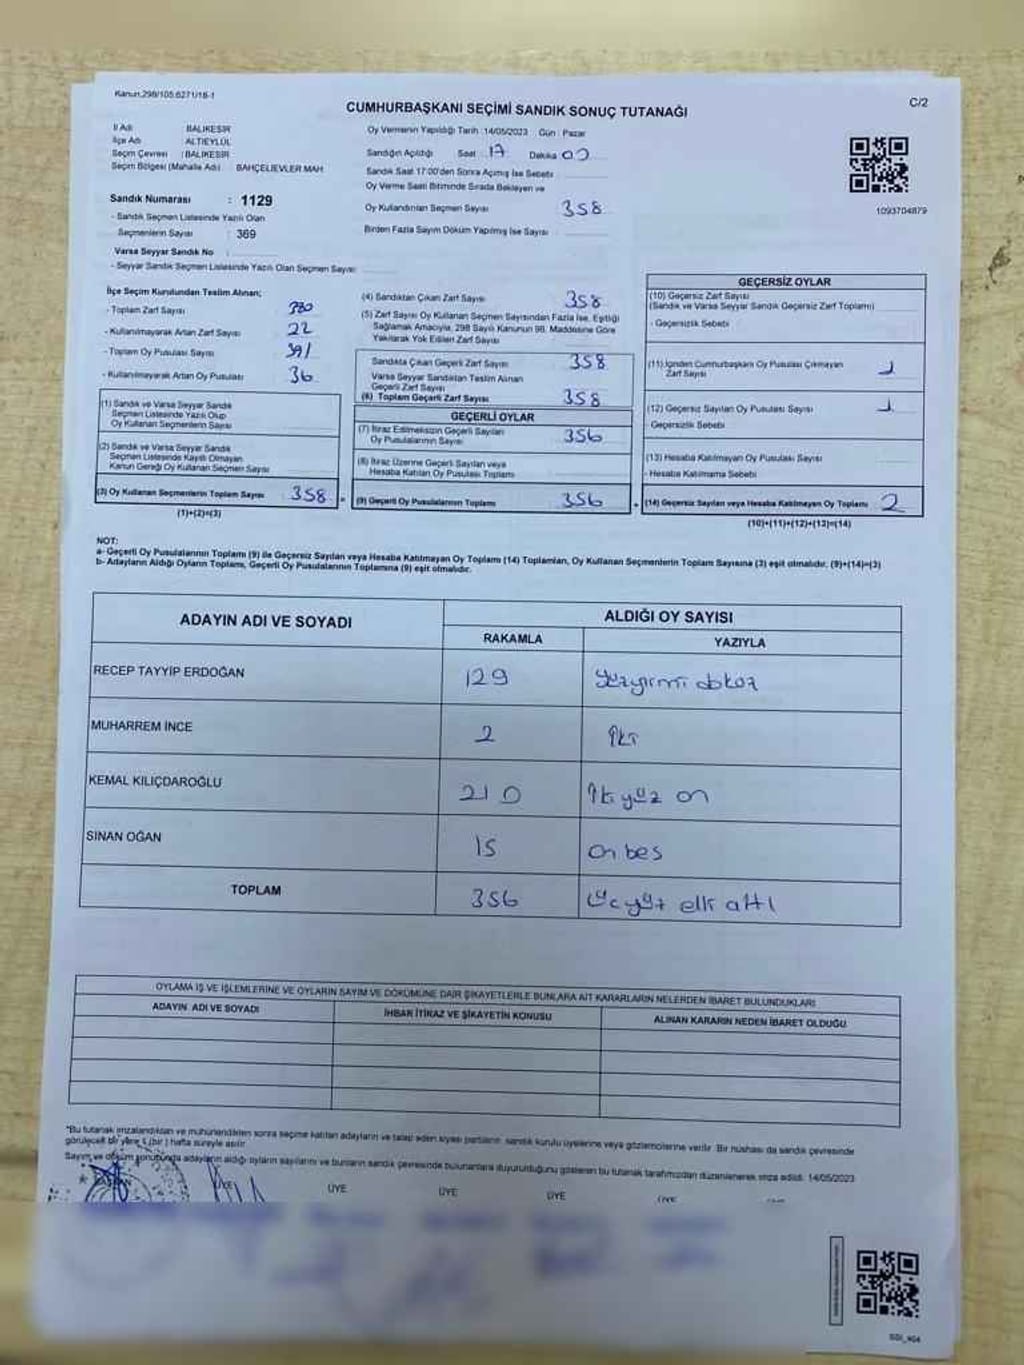 Kanun:298/105.6271/18-1
C/2
CUMHURBAŞKANI SEÇİMİ SANDIK SONUÇ TUTANAĞI
İl Adı : BALIKESİR
İlçe Adı : ALTIEYLÜL
Seçim Çevresi : BALIKESİR
Seçim Bölgesi (Mahalle Adı) BAHÇELİEVLER MAH.
Sandık Numarası : 1129
- Sandık Seçmen Listesinde Yazılı Olan
Seçmenlerin Sayısı : 369
Varsa Seyyar Sandık No :
- Seyyar Sandık Seçmen Listesinde Yazılı Olan Seçmen Sayısı
Oy Vermenin Yapıldığı Tarih :14/05/2023 Gün : Pazar
Sandığın Açıldığı Saat : 17 Dakika 00
Sandık Saat 17:00'den Sonra Açılmış İse Sebebi
Oy Verme Saati Bitiminde Sırada Bekleyen ve
Oy Kullandırılan Seçmen Sayısı 358
Birden Fazla Sayım Döküm Yapılmış İse Sayısı
1093704879
İlçe Seçim Kurulundan Teslim Alınan;
- Toplam Zarf Sayısı 380
- Kullanılmayarak Artan Zarf Sayısı 22
- Toplam Oy Pusulası Sayısı 391
- Kullanılmayarak Artan Oy Pusulası 36
(1) Sandık ve Varsa Seyyar Sandık
Seçmen Listesinde Yazılı Olup
Oy Kullanan Seçmenlerin Sayısı
(2) Sandık ve Varsa Seyyar Sandık
Seçmen Listesinde Kayıtlı Olmayan
Kanun Gereği Oy Kullanan Seçmen Sayısı
(3) Oy Kullanan Seçmenlerin Toplam Sayısı 358
(1)+(2)=(3)
(4) Sandıktan Çıkan Zarf Sayısı 358
(5) Zarf Sayısı Oy Kullanan Seçmen Sayısından Fazla İse, Eşitliği
Sağlamak Amacıyla, 298 Sayılı Kanunun 98. Maddesine Göre
Yakılarak Yok Edilen Zarf Sayısı
Sandıkta Çıkan Geçerli Zarf Sayısı 358
Varsa Seyyar Sandıktan Teslim Alınan
Geçerli Zarf Sayısı
(6) Toplam Geçerli Zarf Sayısı 358
GEÇERLİ OYLAR
(7) İtiraz Edilmeksizin Geçerli Sayılan
Oy Pusulalarının Sayısı 356
(8) İtiraz Üzerine Geçerli Sayılan veya
Hesaba Katılan Oy Pusulası Toplamı
(9) Geçerli Oy Pusulalarının Toplamı 356
GEÇERSİZ OYLAR
(10) Geçersiz Zarf Sayısı
(Sandık ve Varsa Seyyar Sandık Geçersiz Zarf Toplamı)
- Geçersizlik Sebebi
(11) İçinden Cumhurbaşkanı Oy Pusulası Çıkmayan
Zarf Sayısı 1
(12) Geçersiz Sayılan Oy Pusulası Sayısı 1
- Geçersizlik Sebebi
(13) Hesaba Katılmayan Oy Pusulası Sayısı
- Hesaba Katılmama Sebebi
(14) Geçersiz Sayılan veya Hesaba Katılmayan Oy Toplamı 2
(10)+(11)+(12)+(13)=(14)
NOT:
a- Geçerli Oy Pusulalarının Toplamı (9) ile Geçersiz Sayılan veya Hesaba Katılmayan Oy Toplamı (14) Toplamları, Oy Kullanan Seçmenlerin Toplam Sayısına (3) eşit olmalıdır. (9)+(14)=(3)
b- Adayların Aldığı Oyların Toplamı, Geçerli Oy Pusulalarının Toplamına (9) eşit olmalıdır.
ADAYIN ADI VE SOYADI
ALDIĞI OY SAYISI
RAKAMLA YAZIYLA
RECEP TAYYİP ERDOĞAN 129 yüzyirmi dokuz
MUHARREM İNCE 2 iki
KEMAL KILIÇDAROĞLU 210 iki yüz on
SİNAN OĞAN 15 on beş
TOPLAM 356 üçyüz elli altı
OYLAMA İŞ VE İŞLEMLERİNE VE OYLARIN SAYIM VE DÖKÜMÜNE DAİR ŞİKAYETLERLE BUNLARA AİT KARARLARIN NELERDEN İBARET BULUNDUKLARI
ADAYIN ADI VE SOYADI İHBAR İTİRAZ VE ŞİKAYETİN KONUSU ALINAN KARARIN NEDEN İBARET OLDUĞU
*Bu tutanak imzalandıktan ve mühürlendikten sonra seçime katılan adayların ve talep eden siyasi partilerin, sandık kurulu üyelerine veya gözlemcilerine verilir. Bir nüshası da sandık çevresinde
görülecek bir yere 1 (bir ) hafta süreyle asılır.
Sayım ve döküm sonucunda adayların aldığı oyların sayılarını ve bunların sandık çevresinde bulunanlara duyurulduğunu gösteren bu tutanak tarafımızdan düzenlenerek imza edildi. 14/05/2023
ÜYE ÜYE ÜYE ÜYE ÜYE